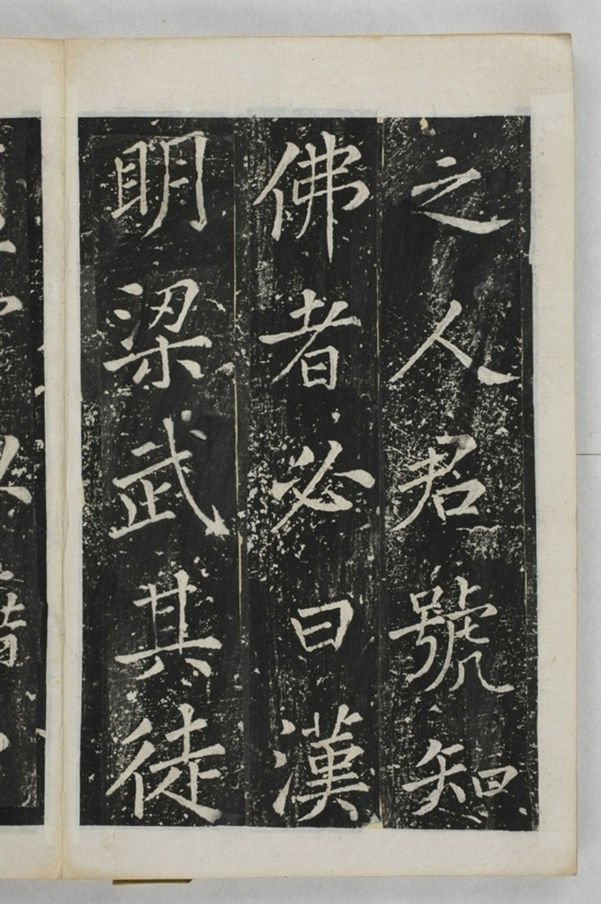 之人君號知
佛者必曰漢
明梁武其徒